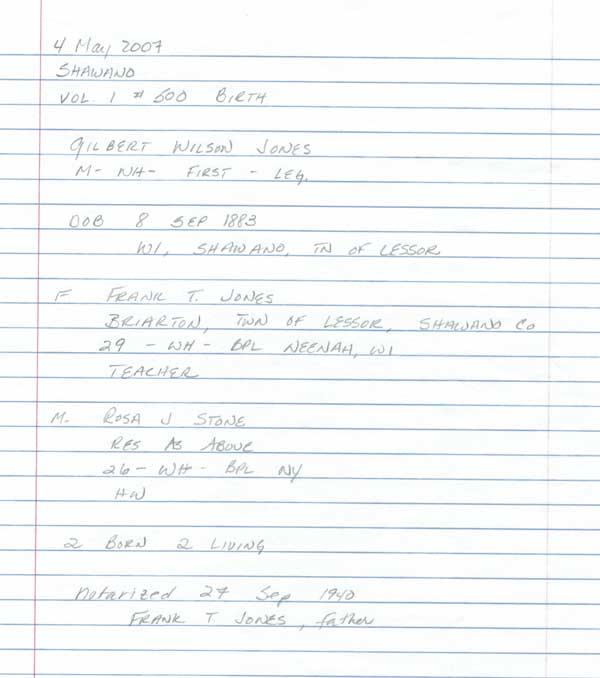 4 May 2007
SHAWANO
VOL. 1 # 500 BIRTH
GILBERT WILSON JONES
M- WH- FIRST - LEG.
DOB 8 SEP 1883
WI, SHAWANO, TN OF LESSOR
F FRANK T. JONES
BRIARTON, TWN OF LESSOR, SHAWANO CO
29 - WH - BPL NEENAH, WI
TEACHER
M. ROSA J STONE
RES AS ABOVE
26 - WH - BPL NY
HW
2 BORN 2 LIVING
Notarized 27 Sep 1940
FRANK T. JONES, father